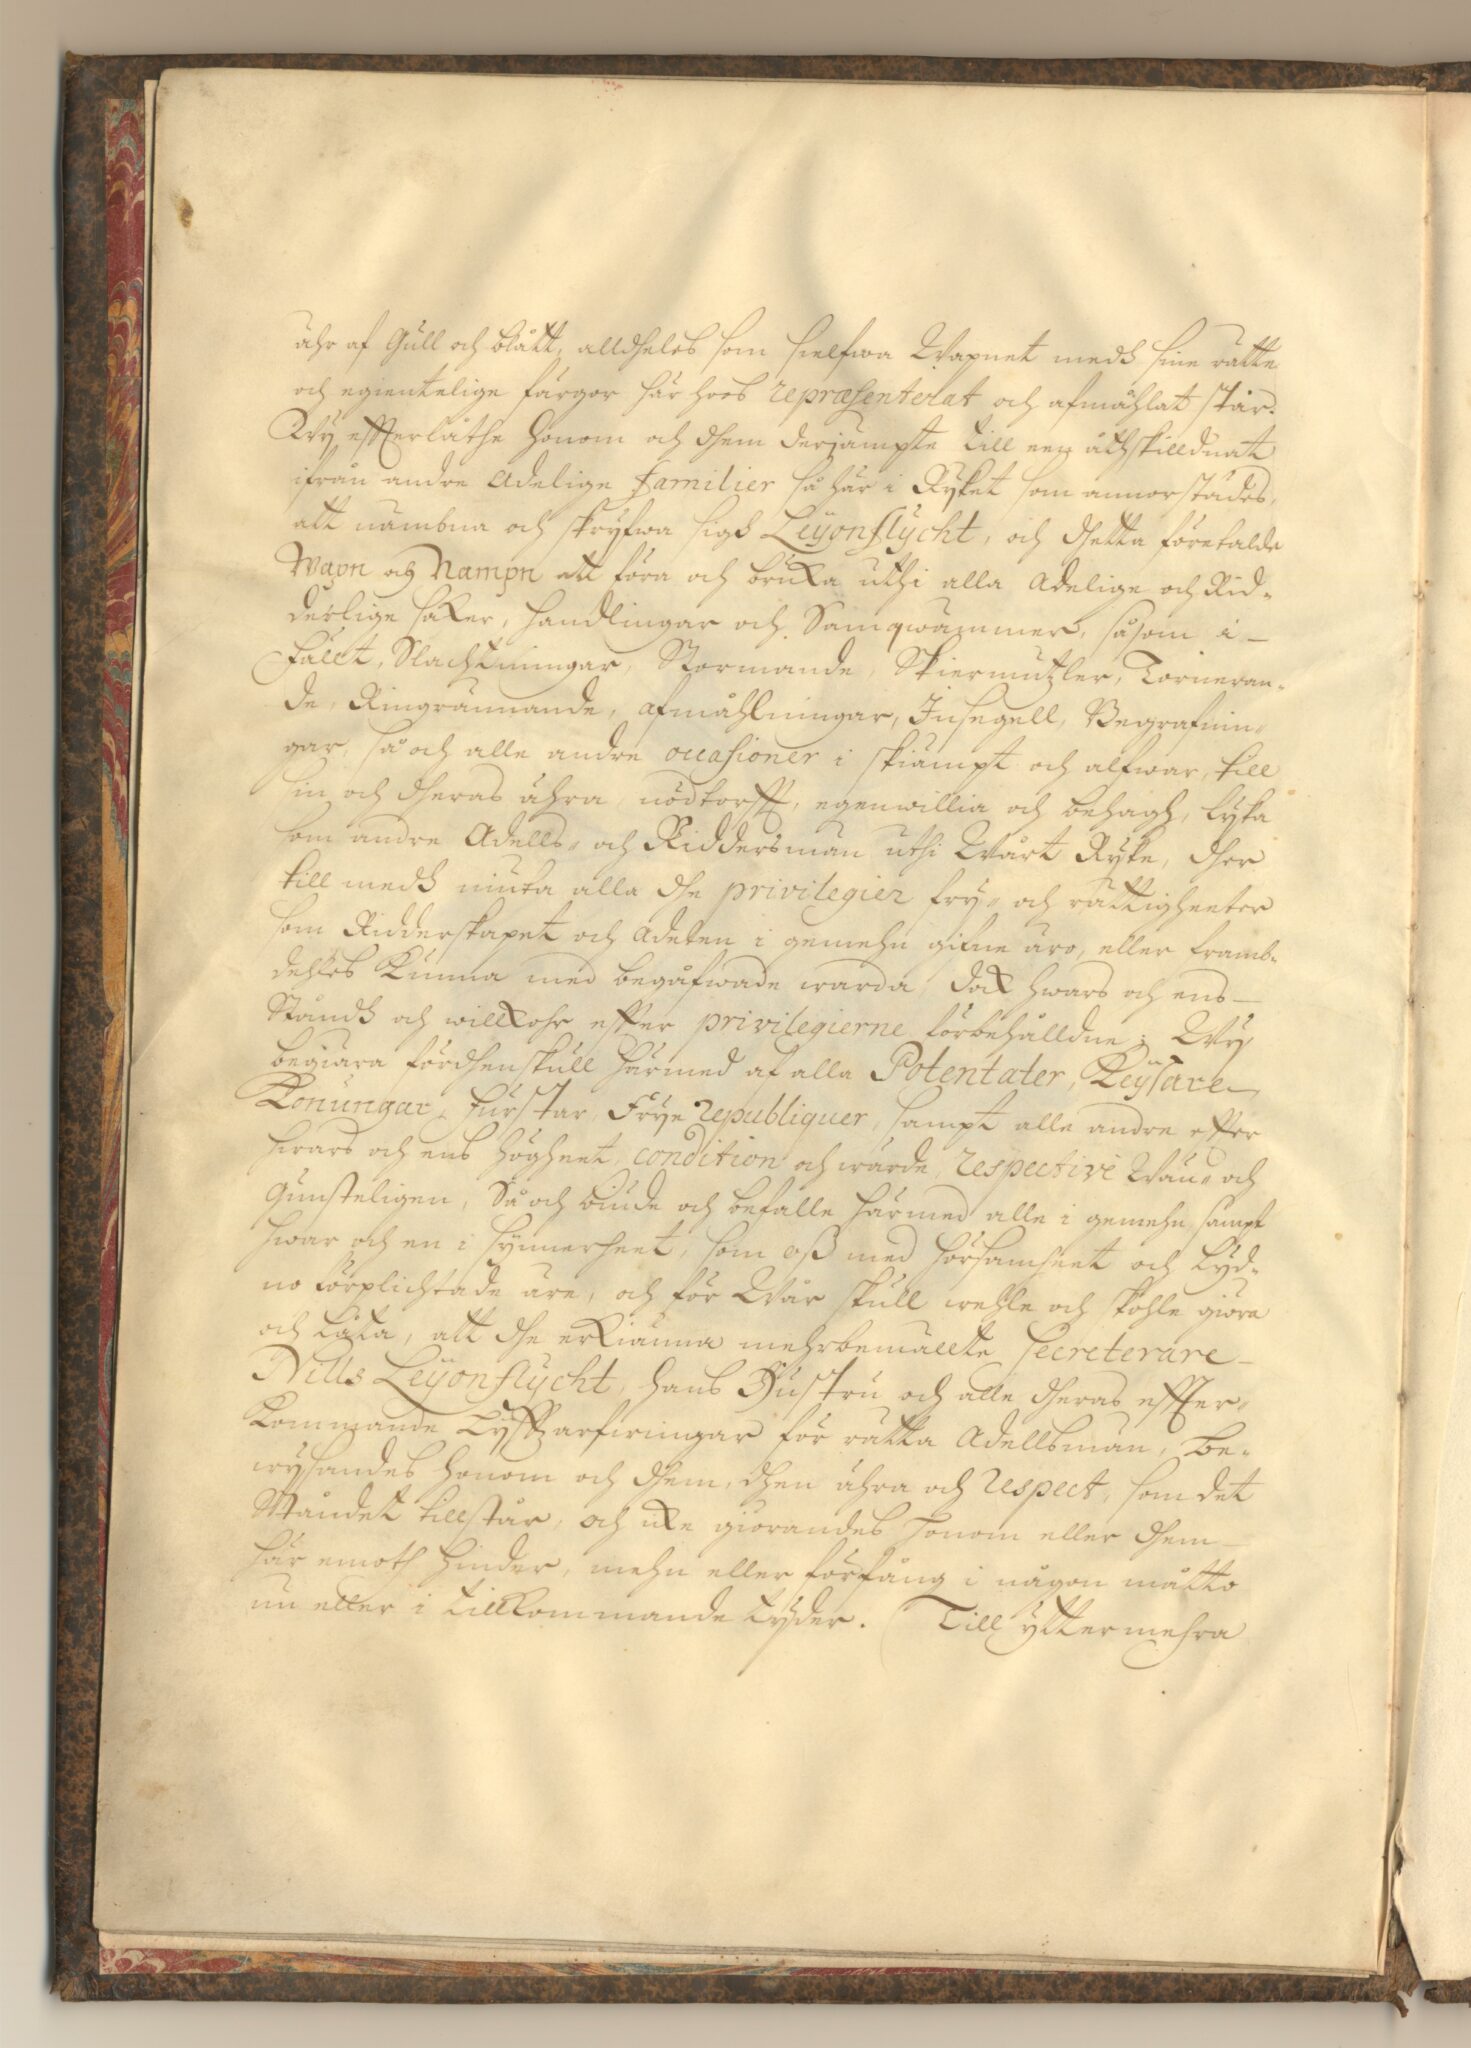 ähr af Gull och blått, alldheles som sielfwa Wapnet medh sine rätte
och egientelige färgor här hoos repræsenterat och afmåhlat står.
Wij effterlåthe honom och dhem derjämpte till een åthskilldnat
ifrån andre Adelige familier så här i Ryket som annorstädes,
att nämbna och skryfwa sigh Leyonflycht, och dhetta förehalde
Wapn och Nampn att föra och bruka uthi alla Adelige och Rid-
derlige saker, handlingar och Samqwämmer, såsom i
Fällt, Slachtningar, Stormande, Skiermutzler, Torneran-
de, Ringrännande, afmåhlningar, Insegell, Begrafnin-
gar, så och alle andre occasioner i skiämpt och alfwar, till
sin och dheras ähra, nödtorfft, egenwillia och behagh, lyka
som andre Adells- och Riddersmän uthi Wårt Ryke, dher
till medh niuta alla dhe privilegier fry- och rättigheeter
som Ridderskapet och Adelen i gemehn gifne äro, eller framb-
dehles kunna med begåfwade warda, dok hwars och ens
Ståndh och willkohr effter privilegierne förbehålldne; Wij
begiära fördhenskull härmed af alla Potentater, Keysare
Konungar, Furstar, Frye republiquer, sampt alle andre effter
hwars och ens högheet, condition och wärde, respective Wän- och
Gunsteligen, Så och biude och befalle härmed alle i gemehn sampt
hwar och en i synnerheet, som oß med hörsamheet och lyd-
no förplichtade äre, och för Wår skull wehle och skohle giöra
och låta, att dhe erkiänna mehrbemällte Secreterare
Nills Leyonflycht, hans Hustru och alle dheras effter-
kommande Lyffzarfwingar för rätta Adellsmän, be-
wysandes honom och dhem, dhen ähra och respect, som det
Ståndet tillstår, och ike giörandes honom eller dhem
här emoth hinder, mehn eller förfång i någon måtto
nu eller i tillkommande tyder. Till yttermehra